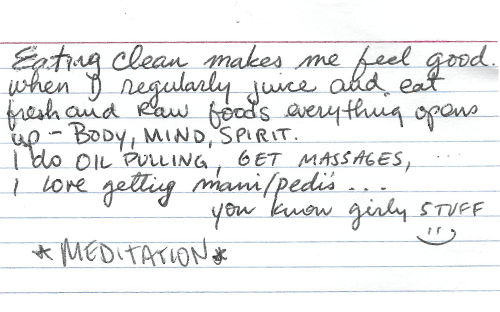 Eating clean makes me feel good.
when I regularly juice and eat
fresh and raw foods everything opens
up - BODY, MIND, SPIRIT.
I do OIL PULLING, GET MASSAGES, ...
I love getting mani/pedi's ...
you know girly STUFF
*MEDITATION*